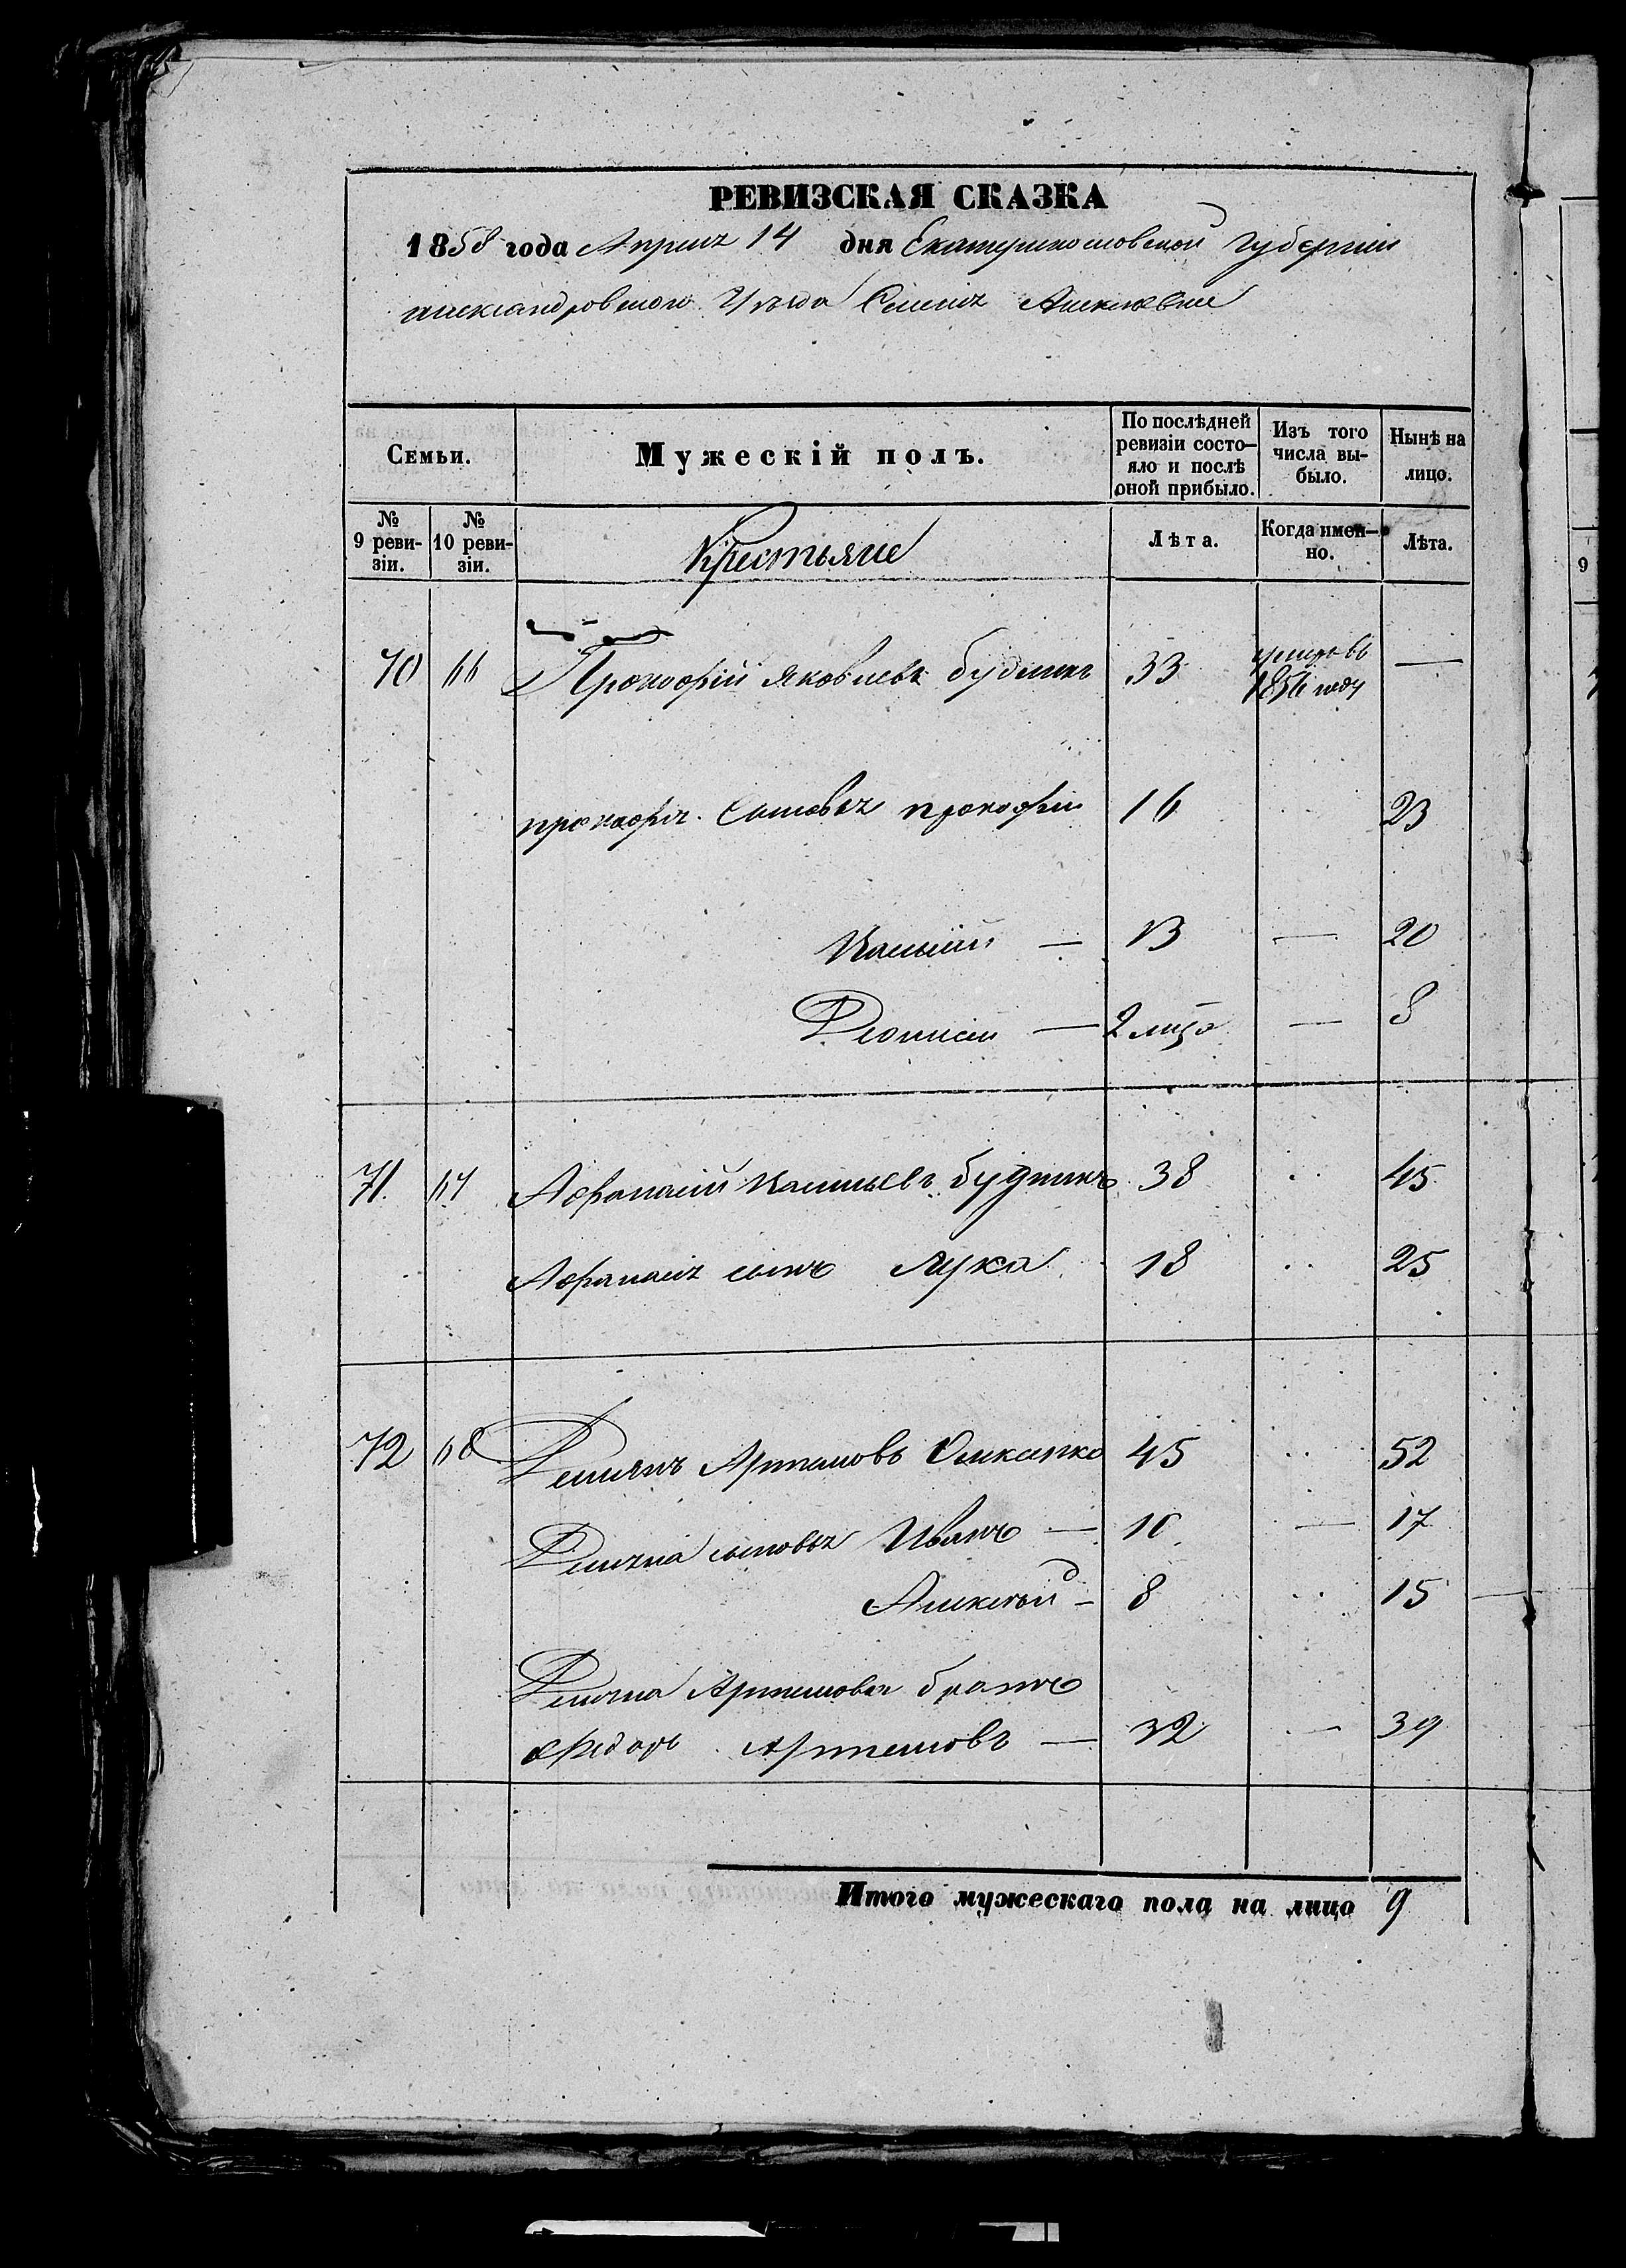 РЕВИЗСКАЯ СКАЗКА
1858 года Апреля 14 дня Екатеринославской Губернии
александровского Уезда Алексеевке
Семьи.
Мужескій полъ.
По послѣдней ревизіи состо-
яло и послѣ
оной прибыло.
Изъ того
числа вы-
было.
Нынѣ на
лицо.
№
9 реви-
зіи.
№
10 реви-
зіи.
Крестьяне
Лѣта.
Когда имен-
но.
Лѣта.
9
70 66 Прокофій Яковлевъ будникъ 33 умеръ въ —
1856 году
прокофія Сыновья прокофій 16 23
— 13 — 20
Деонисій — 2 — 8
71. 67 Афанасій будникъ 38 45
Афанасія сынъ Лука 18 25
72 68 Демьянъ Артемовъ 45 52
Демяна сыновья Иванъ — 10 — 17
Алексѣй — 8 15
Демяна Артемова братъ
Федоръ Артемовъ — 32 — 39
Итого мужескаго пола на лицо 9